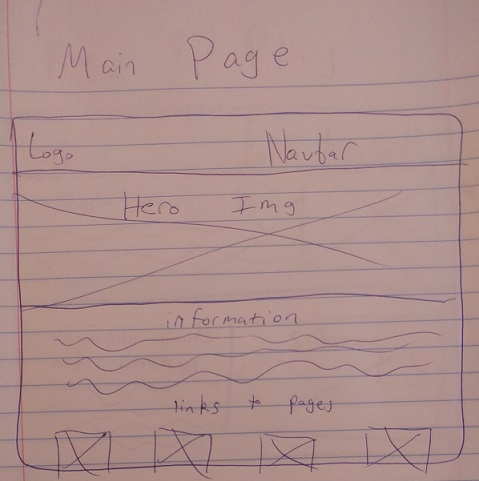 Main Page
Logo Navbar
Hero Img
information
links to pages